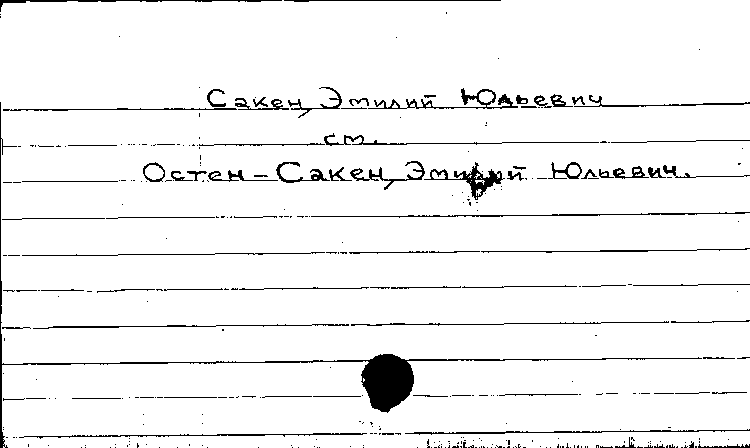 Сакен, Эмилий Юльевич
см.
Остен-Сакен, Эмилий Юльевич.